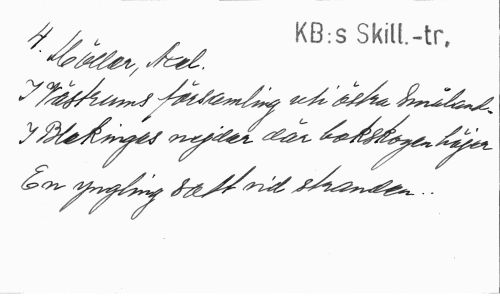 KB:s Skill.-tr.
4.
Möller, Axel.
I Västrums församling uti östra Småland..
I Blekinges nejder där bokskogen höjer
En yngling satt vid stranden..